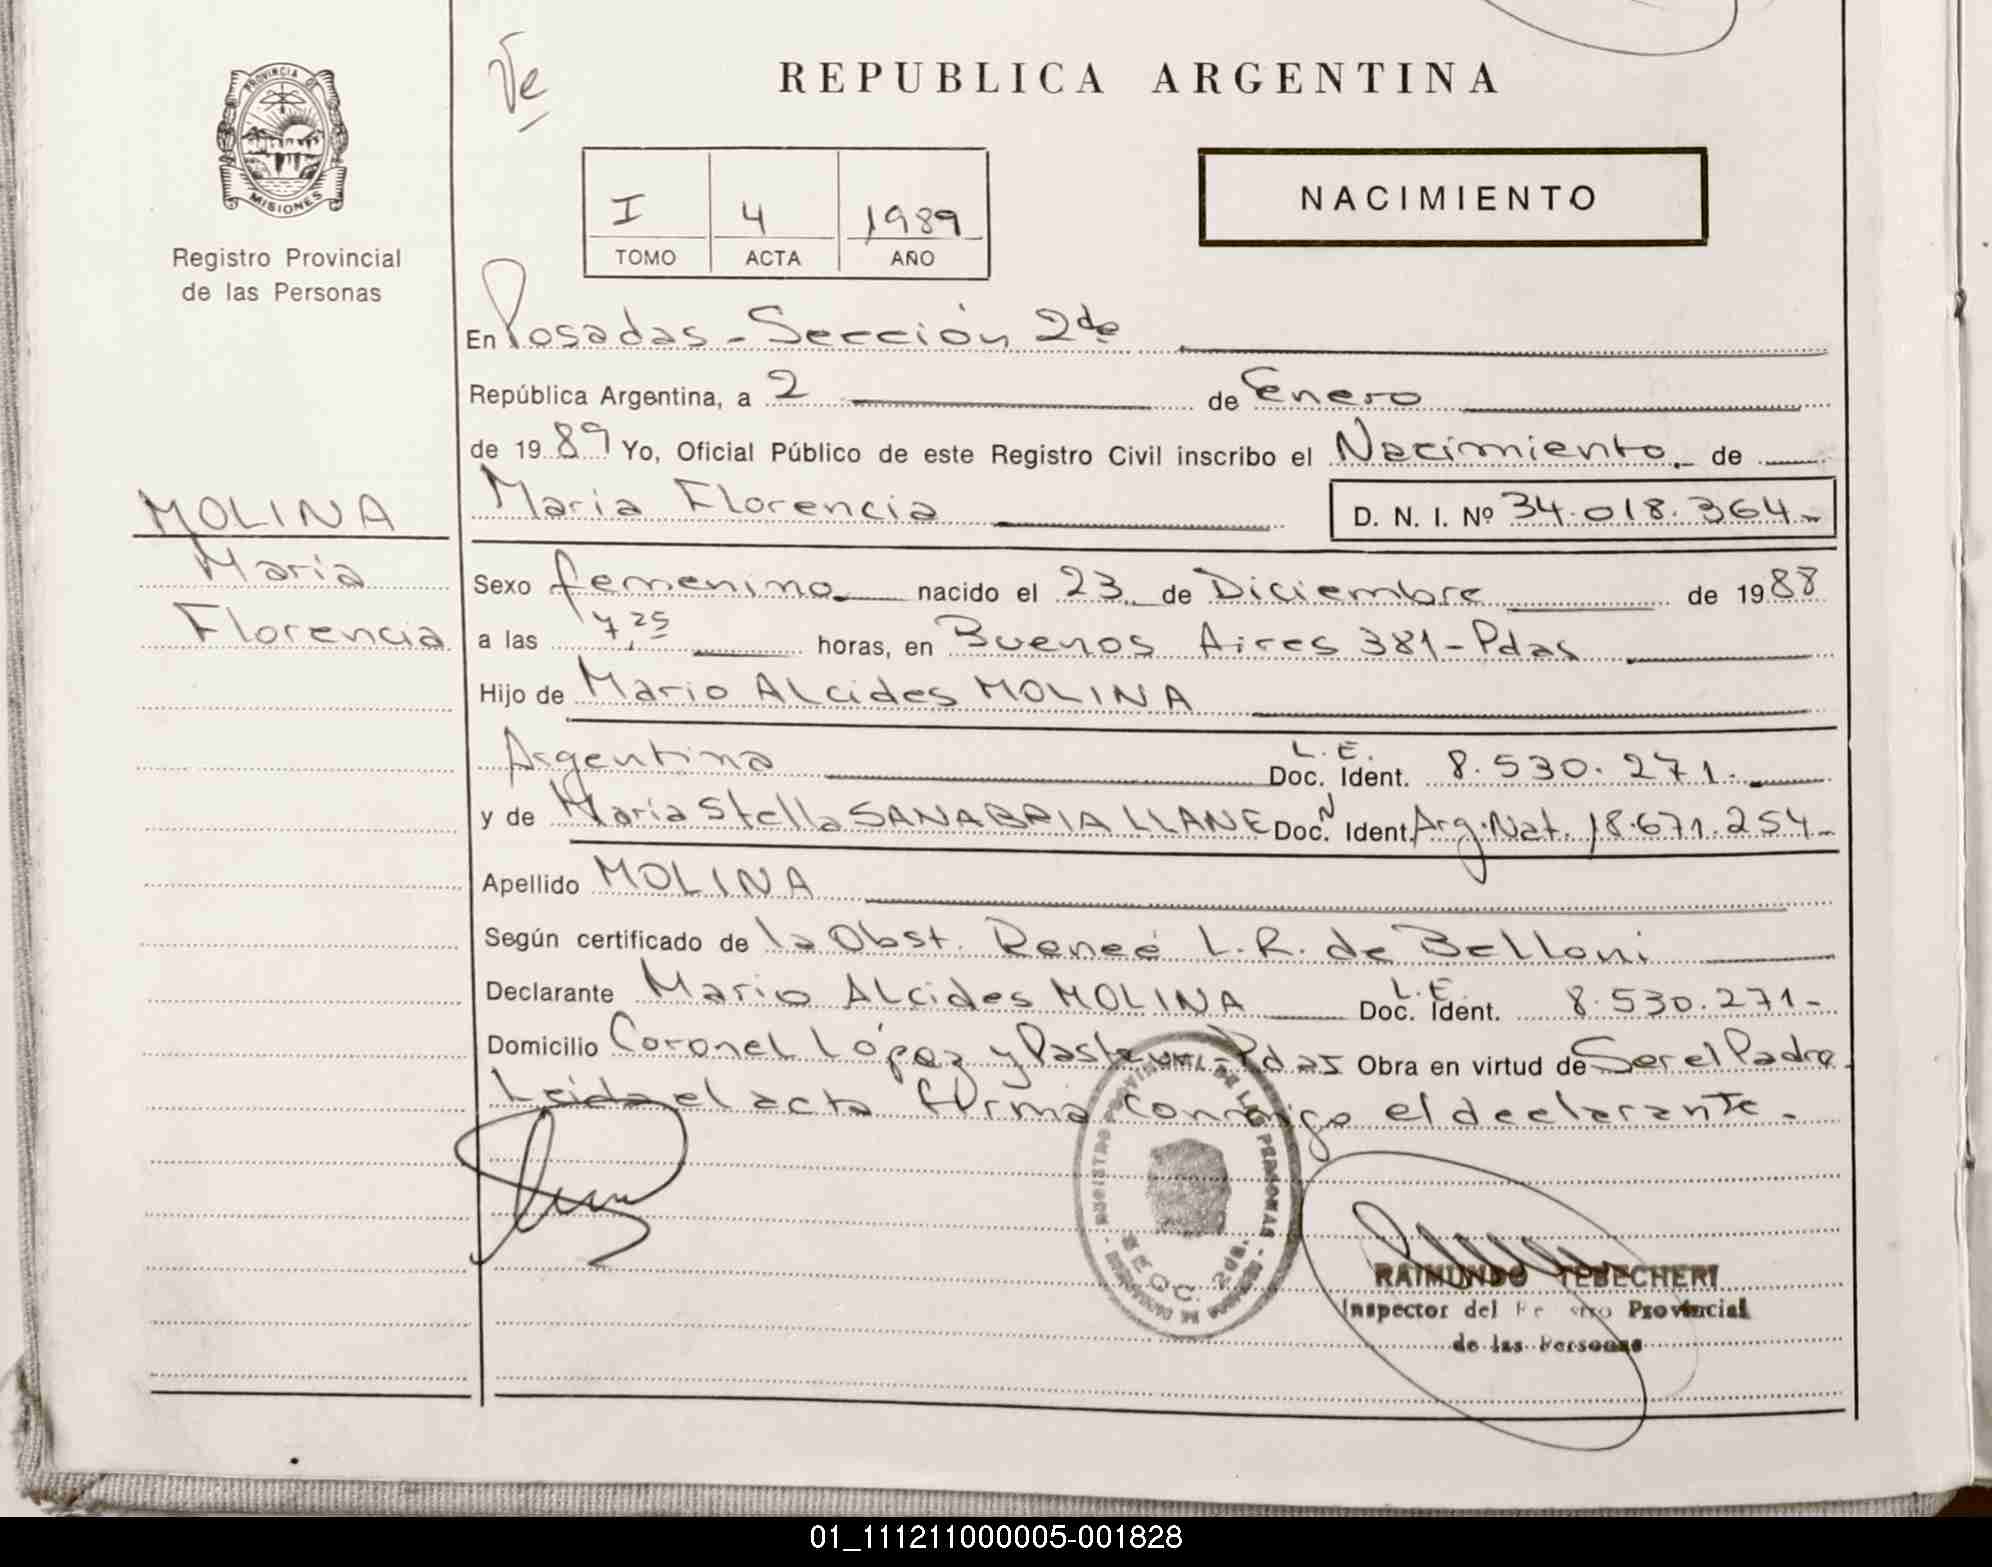 Ve
REPUBLICA ARGENTINA
PROVINCIA DE
MISIONES
Registro Provincial
de las Personas
NACIMIENTO
I 4 1989
TOMO ACTA AÑO
En Posadas - Sección 2da
República Argentina, a 2 de Enero
de 1989 Yo, Oficial Público de este Registro Civil inscribo el Nacimiento de
MOLINA
María
Florencia
Maria Florencia D. N. I. Nº 34.018.364-
Sexo femenino nacido el 23 de Diciembre de 1988
a las 7,25 horas, en Buenos Aires 381-Pdas
Hijo de Mario Alcides MOLINA
Argentina L.E. Doc. Ident. 8.530.271.
y de María Stella SANABRIA LLANEN Doc. Ident. Arg. Nat. 18.671.254-
Apellido MOLINA
Según certificado de la Obst. Reneé L.R. de Belloni
Declarante Mario Alcides MOLINA L.E. Doc. Ident. 8.530.271-
Domicilio Coronel López y Pasteur - Pdas Obra en virtud de Ser el Padre
Leída el acta firma conmigo el declarante.
REGISTRO PROVINCIAL DE LAS PERSONAS
SECC. 2da.
RAIMUNDO TEBECHERI
Inspector del Registro Provincial
de las Personas
01_111211000005-001828